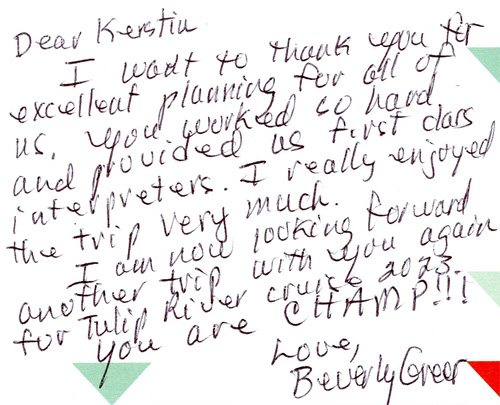 Dear Kerstin
I wadt to thank you for
excellent planning for all of
us. You worked so hard
and provided us first class
interpreters. I really enjoyed
the trip very much.
I am now looking forward
another trip with you again
for Tulip River cruise 2023.
You are CHAMP!!!
Love,
Beverly Greer